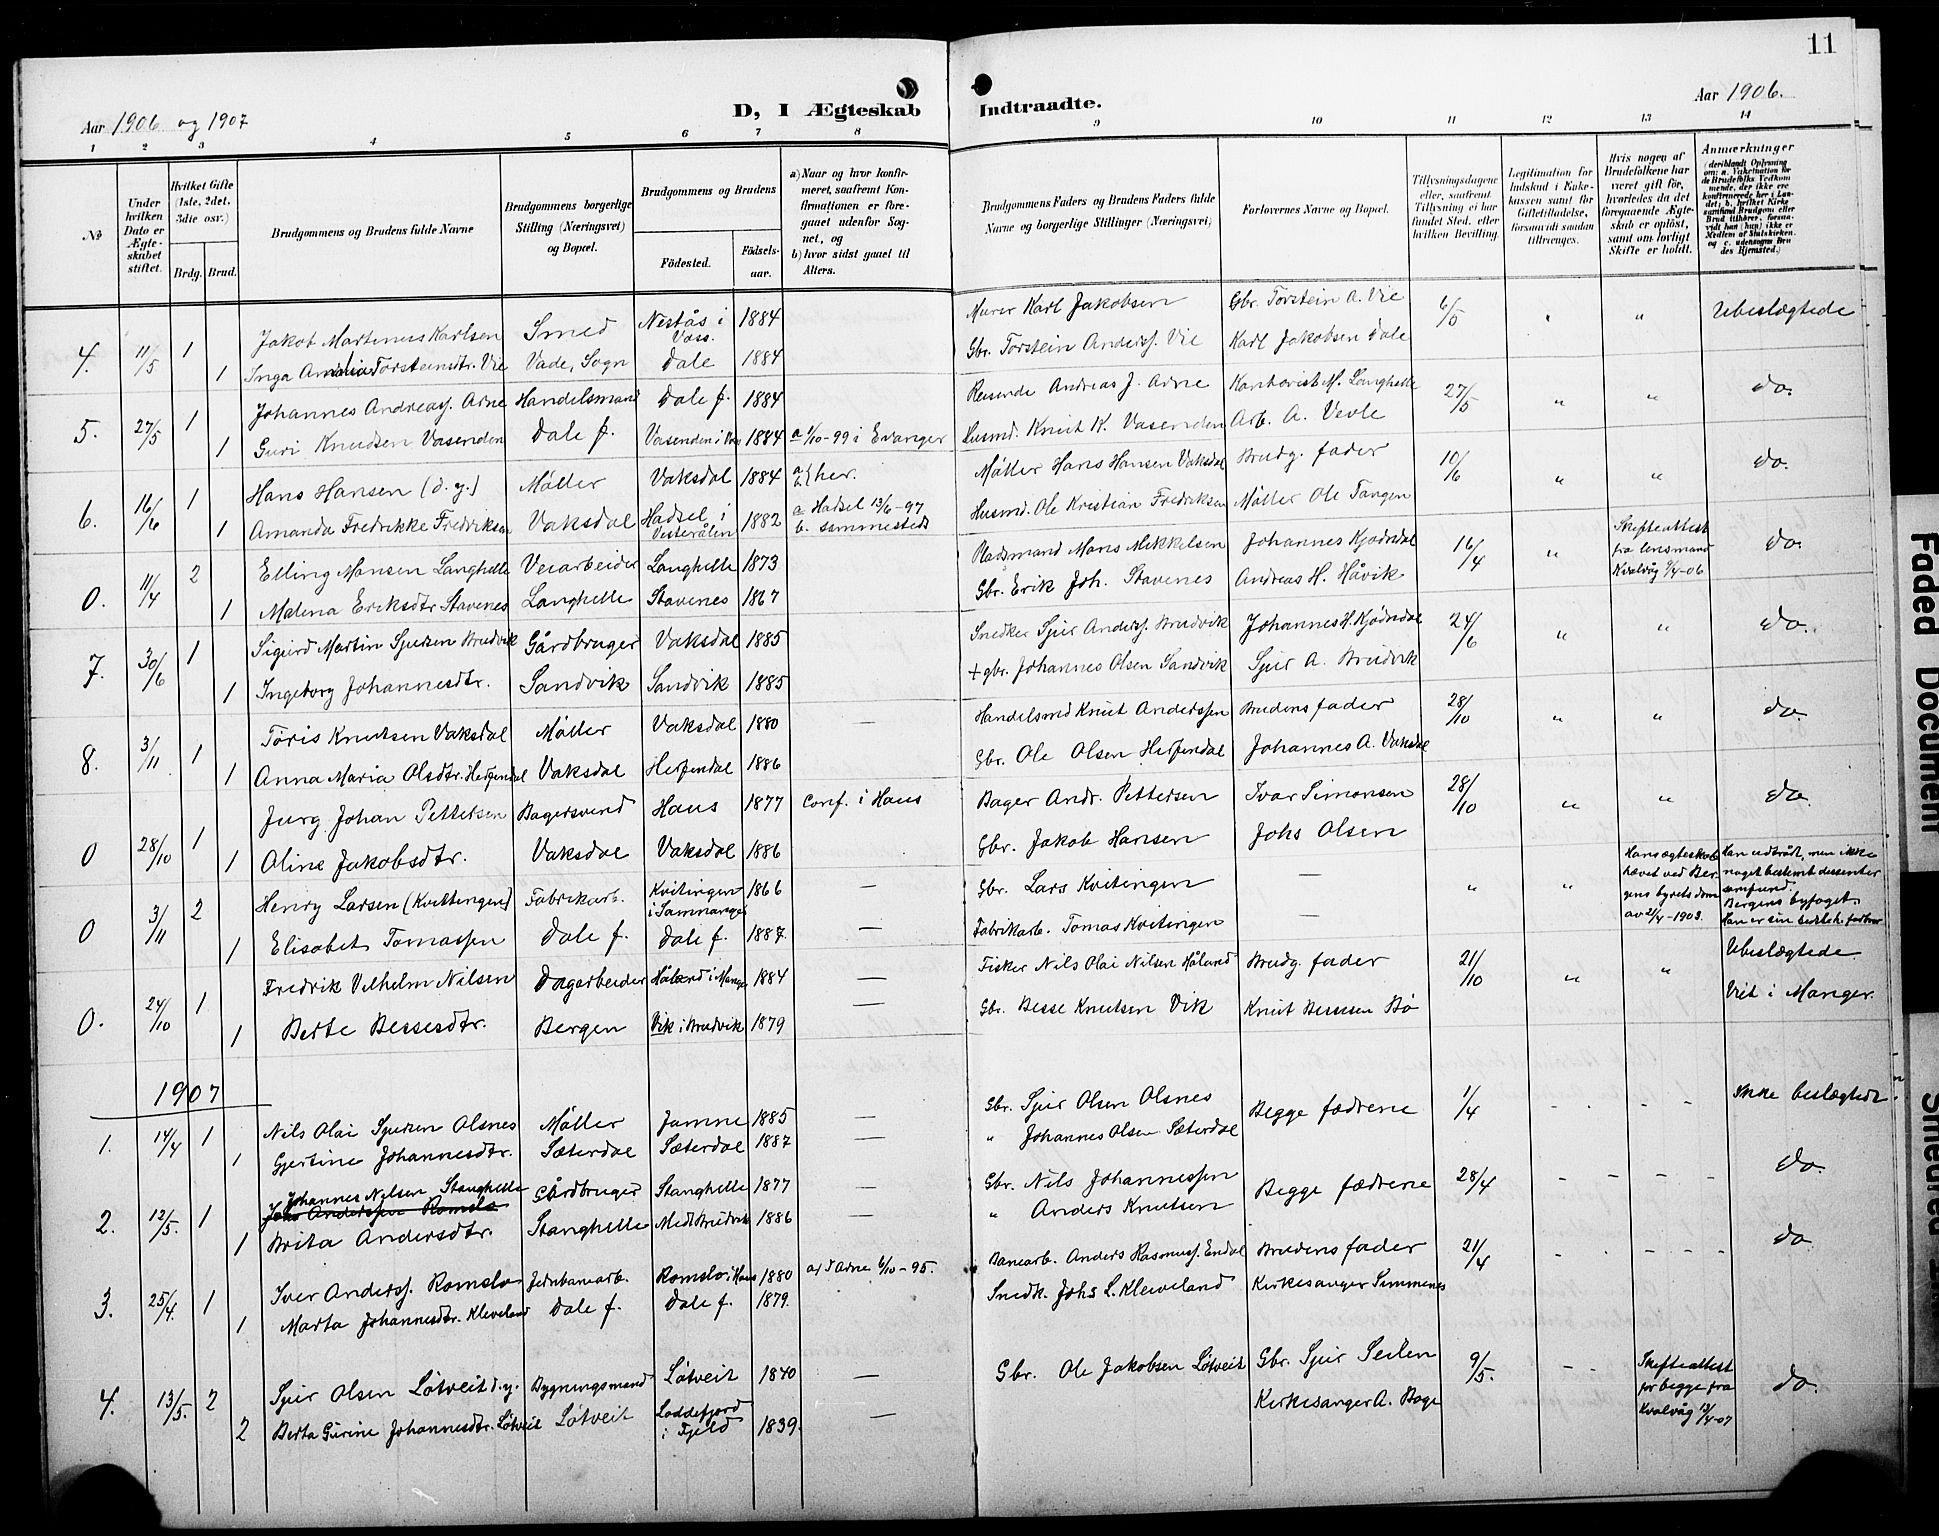 11
Aar 1906 og 1907
D, I Ægteskab Indtraadte.
Aar 1906.
1 2 3 4 5 6 7 8 9 10 11 12 13 14
№
Under hvilken Dato er Ægteskabet stiftet.
Hvilket Gifte (1ste, 2det, 3die osv.)
Brdg. Brud.
Brudgommens og Brudens fulde Navne
Brudgommens borgerlige Stilling (Næringsvei) og Bopæl.
Brudgommens og Brudens
Födested. Födselsaar.
a) Naar og hvor konfirmeret, saafremt Konfirmationen er foregaaet udenfor Sognet, og
b) hvor sidst gaaet til Alters.
Brudgommens Faders og Brudens Faders fulde Navne og borgerlige Stillinger (Næringsvei)
Forlovernes Navne og Bopæl.
Tillysningsdagene eller, saafremt Tillysning ei har fundet Sted, efter hvilken Bevilling.
Legitimation for Indskud i Enkekassen samt for Giftetilladelse, forsaavidt saadan tiltrænges.
Hvis nogen af Brudefolkene har været gift før, hvorledes da det foregaaende Ægteskab er opløst, samt om lovligt Skifte er holdt.
Anmærkninger
(deriblandt Oplysning om: a. Vakcination for de Brudefolks Vedkommende, der ikke ere konfirmerede her i Landet; b. hvilket Kirkesamfund Brudgom eller Brud tilhører, forsaavidt han (hun) ikke er Medlem af Statskirken, og c. udensogns Brudes Hjemsted.)
4. 11/5 1 Jakob Martinus Karlsen Smed Nestås i Voss. 1884 Murer Karl Jakobsen Gbr. Torstein A. Vie 6/5 " " Ubeslægtede
1 Inga Amalia Torsteinsdtr. Vie Vade, Sogn Dale 1884 Gbr. Torstein Anderss. Vie Karl Jakobsen Dale
5. 27/5 1 Johannes Andreass. Arne Handelsmand Dale f. 1884 Reisende Andreas J. Arne Kontorist M. Langhelle 27/5 " " do.
1 Guri Knudsen Vasenden Dale f. Vasenden i Voss 1884 a 1/10-99 i Evanger Husmd. Knut K. Vasenden Arb. A. Vevle
6. 16/6 1 Hans Hansen (d.y.) Møller Vaksdal 1884 a b } her. Møller Hans Hansen Vaksdal Brudg. fader 10/6 " " do.
1 Amanda Fredrikke Fredriksen Vaksdal Hadsel i Vesterålen 1882 a Hadsel 13/6-97 b. sammesteds Husmd. Ole Kristian Fredriksen Møller Ole Tangen
0. 11/4 2 Elling Monsen Langhelle Veiarbeider Langhelle 1873 Pladsmand Mons Mikkelsen Johannes Kjødndal 16/4 " Skifteattest fra lensmand Kvalvåg 9/4-06 do.
1 Malena Eriksdtr Stavenes Langhelle Stavenes 1867 Gbr. Erik Joh. Stavenes Andreas H. Håvik
7. 30/6 1 Sigurd Martin Sjursen Brudvik Gårdbruger Vaksdal 1885 Snedker Sjur Anderss. Brudvik Johannes H. Kjødndal 24/6 " " do.
1 Ingeborg Johannesdtr. Sandvik Sandvik 1885 + gbr. Johannes Olsen Sandvik Sjur A. Brudvik
8. 3/11 1 Tøris Knutsen Vaksdal Møller Vaksdal 1880 — Handelsmd Knut Anderssen Brudens fader 28/10 " " do.
1 Anna Maria Olsdtr. Herfendal Vaksdal Herfendal 1886 Gbr. Ole Olsen Herfendal Johannes A. Vaksdal
0 28/10 1 Jurg. Johan Pettersen Bagersvend Haus 1877 Conf. i Haus Bager Andr. Pettersen Ivar Simonsen 28/10 " " do.
1 Oline Jakobsdtr. Vaksdal Vaksdal 1886 Gbr. Jakob Hansen Johs Olsen
0 3/11 2 Henry Larsen (Kvittingen) Fabrikarb. Kvitingen i Samnanger 1866 — Gbr. Lars Kvitingen — " " Hans ægteskab hævet ved Bergens byrets dom av 2/4-1903. Han udtrådt, men ikke noget bestemt dissentersamfund. Bergens byfoget.
1 Elisabet Tomassen Dale f. Dale f. 1887. — Fabrikarb. Tomas Kvitingen —
0. 24/10 1 Fredrik Vilhelm Nilsen Dagarbeider Håland i Manger 1884 — Fisker Nils Olai Nilsen Håland Brudg. fader 21/10 " " Ubeslægtede
1 Berte Bessesdtr. Bergen Vik i Brudvik 1879 — Gbr. Besse Knutsen Vik Knut Bessesen Bø Viet i Manger.
1907
1. 14/4 1 Nils Olai Sjursen Olsnes Møller Jamne 1885 — Gbr. Sjur Olsen Olsnes Begge fædrene 1/4 - - - Ikke beslægtede.
1 Gjertine Johannesdtr. Sæterdal Sæterdal 1887 — " Johannes Olsen Sæterdal
2. 12/5. 1 Johannes Nilsen Stanghelle Gårdbruger Stanghelle 1877 — Gbr. Nils Johannessen Begge fædrene 28/4 - - - do.
Johs Anderssen Romslo
1 Brita Andersdtr. Stanghelle Medt Brudvik 1886 — " Anders Knutsen
3. 25/4. 1 Iver Anderss. Romslo Jernbanearb. Romslo i Haus 1880 a) i Arne 6/10-95. Banearb. Anders Rasmuss. Endal Brudens fader 21/4 - - - do
1 Marta Johannesdtr. Kleveland Dale f. Dale f. 1879. Snedk. Johs L. Kleiveland Kirkesanger Simmenes
4. 13/5. 2 Sjur Olsen Løtveit d.y. Bygningsmand Løtveit 1840 — Gbr. Ole Jakobsen Løtveit Gbr. Sjur Seilen 9/5. - - Skifteattest for begge fra Kvalvåg 13/4-07 do.
2 Berta Gurine Johannesdtr. Løtveit Løtveit Loddefjord i Fjeld 1839. — Kirkesanger A. Boge
Faded Document